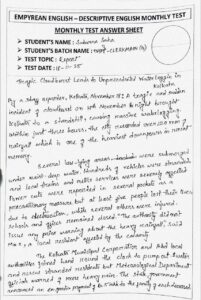 EMPYREAN ENGLISH – DESCRIPTIVE ENGLISH MONTHLY TEST
MONTHLY TEST ANSWER SHEET
➤ STUDENT'S NAME : Subarna Saha
➤ STUDENT'S BATCH NAME : CLERKMAIN
➤ TEST TOPIC : Report
➤ TEST DATE : 18-11-25
Tragic Cloudburst Leads to Unprecedented Waterlogging in
Kolkata
By a staff reporter, Kolkata, November 18: A tragic and sudden
incident of cloudburst on November night brought
Kolkata to a standstill, causing massive waterlogging
within just three hours. The city recorded over 100 mm of
rainfall which is one of the heaviest downpours in recent
memory.
Several low-lying areas were submerged
under waist-deep water. Hundreds of vehicles were stranded
and local trains and metro services were severely affected.
Power cuts were reported in several pockets as a
precautionary measure but at least five people lost their lives
due to electrocution, while several others were injured.
Schools and offices remained closed. "The authority did not
issue any prior warning about the heavy rainfall", said
Mr. , a local resident by the calamity.
The Kolkata Municipal Corporation and local
authorities joined hand round the clock to pump out water
and rescue stranded residents but Meteorological Department
officials warned of more heavy rain. The state government
announced an ex-gratia payment of ₹ lakh to the family of each deceased.